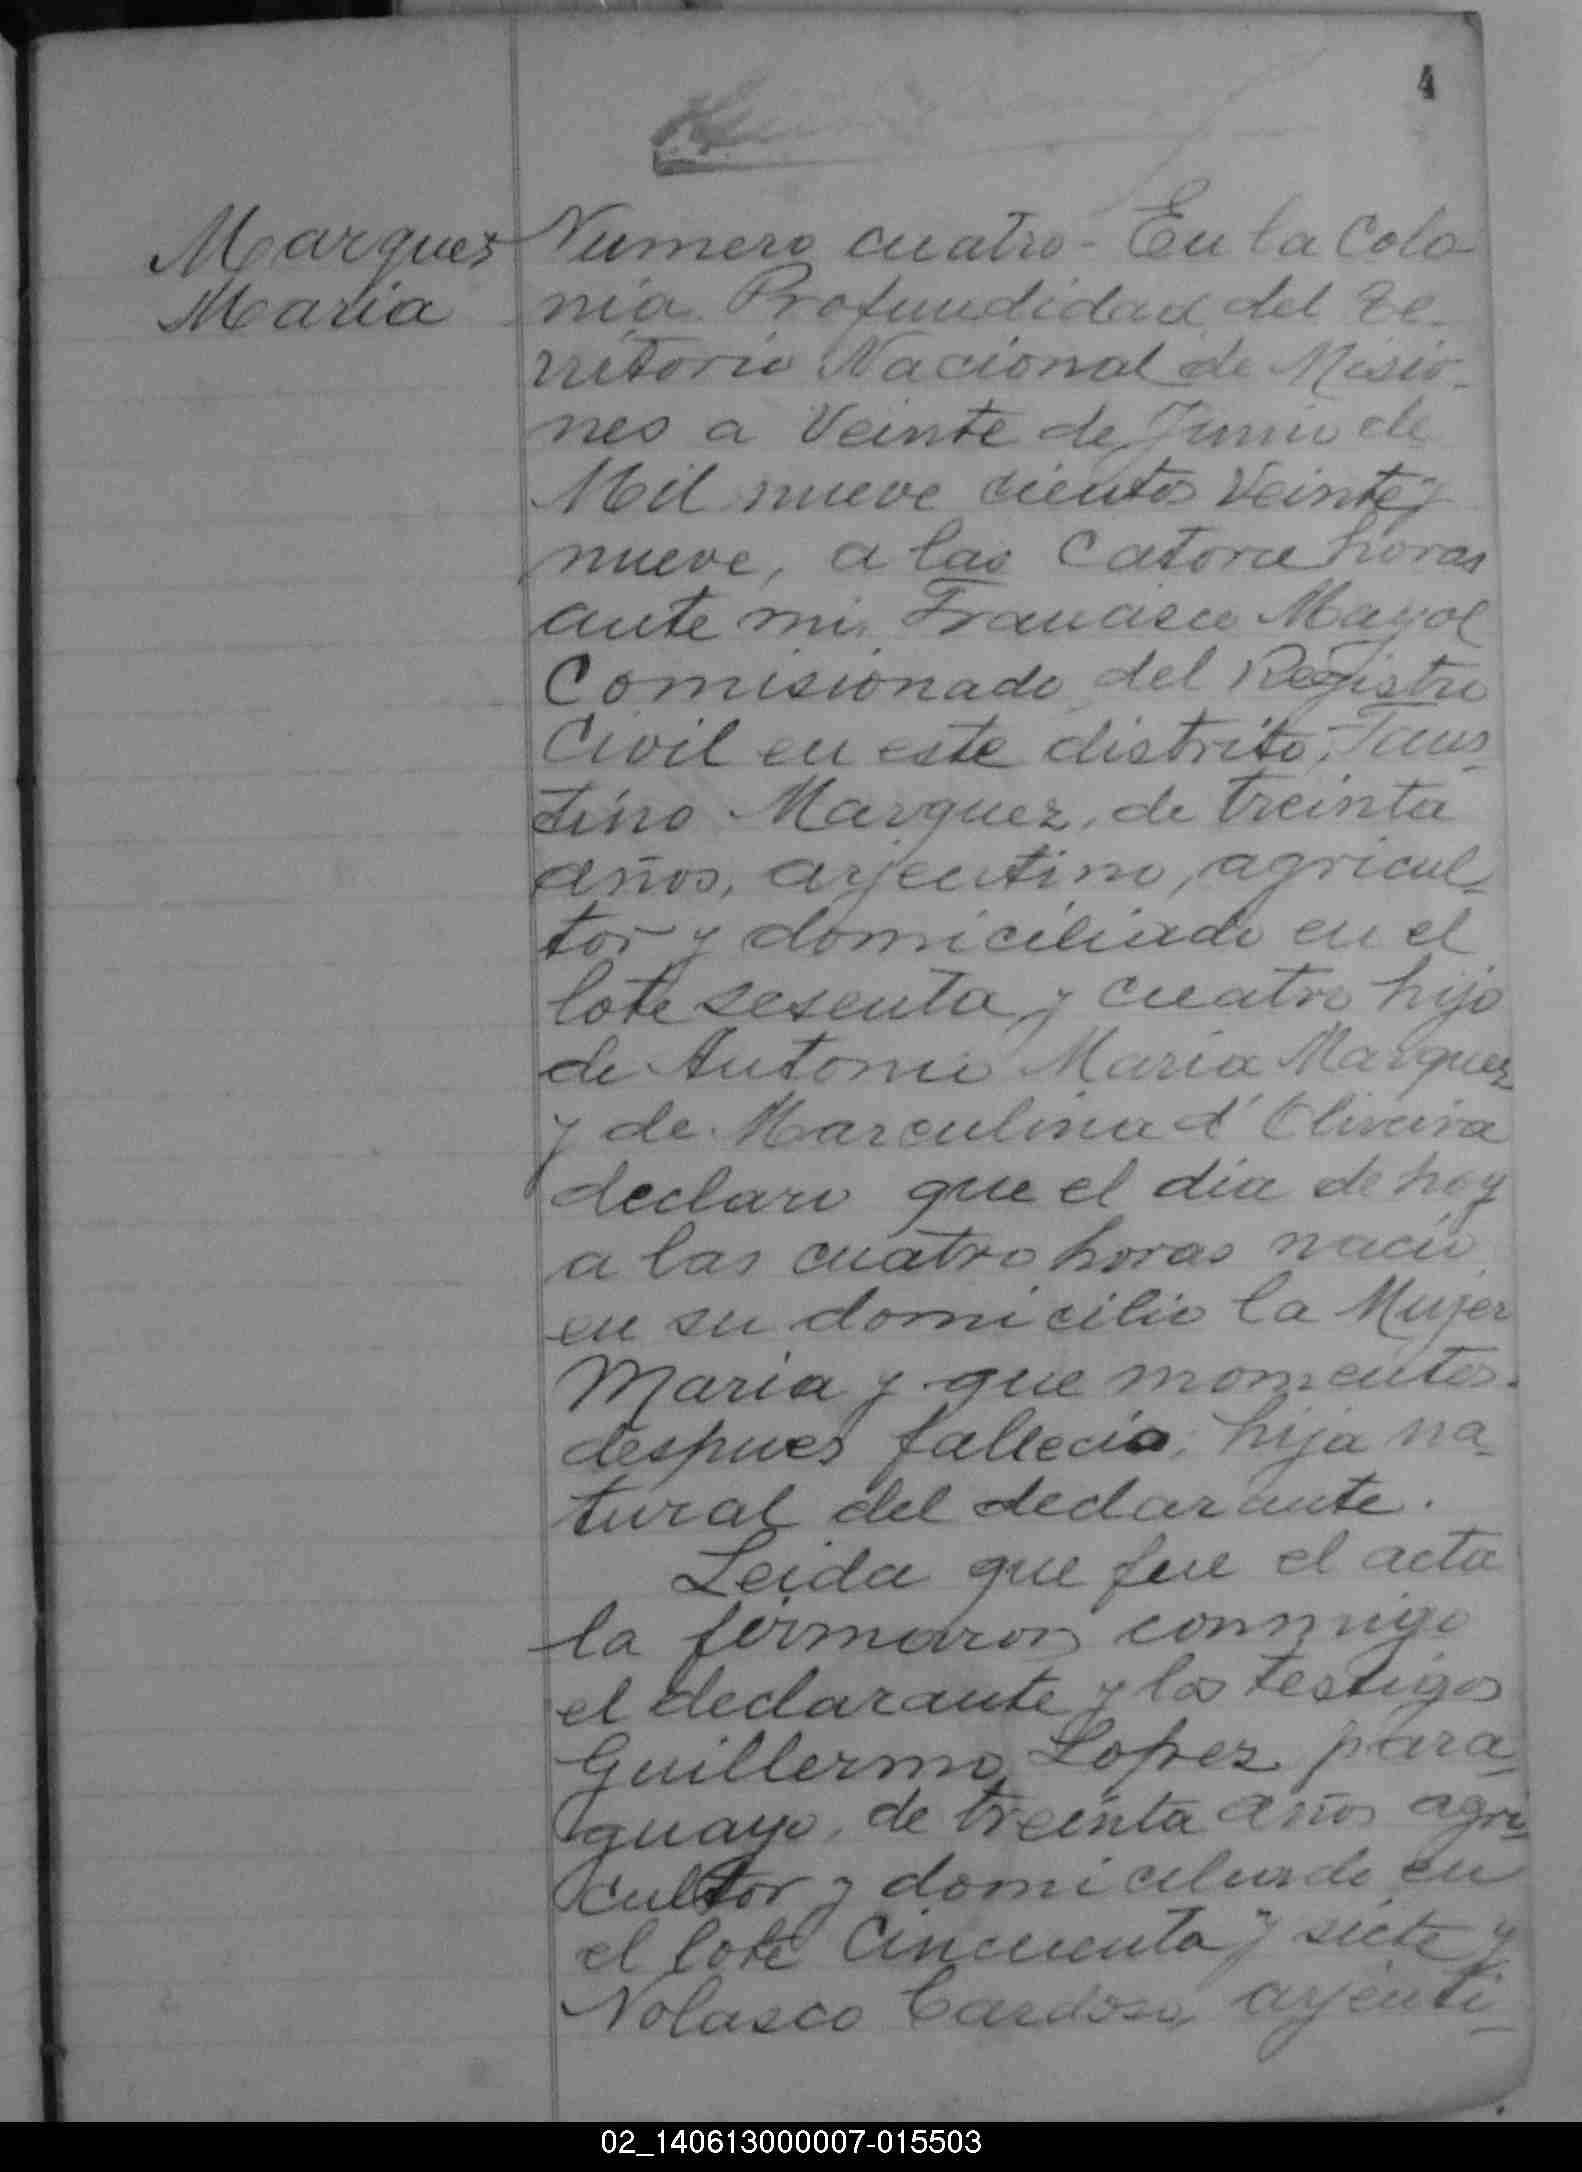 4
Marquez
Maria
Numero cuatro - En la Colo
nia Profundidad del Te_
rritorio Nacional de Misio_
nes a Veinte de Junio de
Mil nueve cientos Veinte y
nueve, a las Catorce horas
ante mi, Francisco Mayol
Comisionado del Registro
Civil en este distrito, Faus_
tino Marquez, de treinta
años, arjentino, agricul_
tor y domiciliado en el
lote sesenta y cuatro hijo
de Antonio Maria Marquez
y de Marculina d'Oliveira
declaro que el dia de hoy
a las cuatro horas nacio
en su domicilio la Mujer
Maria y que momentos
despues fallecio; hija na_
tural del declarante.
Leida que fue el acta
la firmaron conmigo
el declarante y los testigos
Guillermo Lopez para_
guayo, de treinta años agri_
cultor y domiciliado en
el lote Cincuenta y siete y
Nolasco Cardoso, arjenti_
02_140613000007-015503